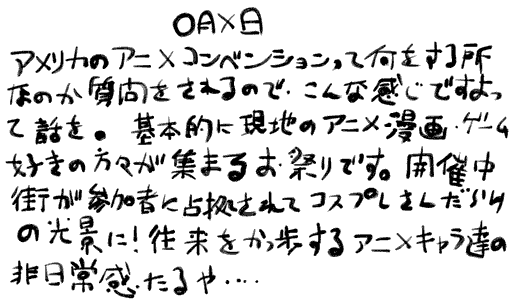 ○月×日
アメリカのアニメコンベンションって何をする所
なのか質問をされるので、こんな感じですよっ
て話を。基本的に現地のアニメ・漫画・ゲーム
好きの方々が集まるお祭りです。開催中
街が参加者に占拠されてコスプレさんだらけ
の光景に！往来をかっ歩するアニメキャラ達の
非日常感たるや‥‥